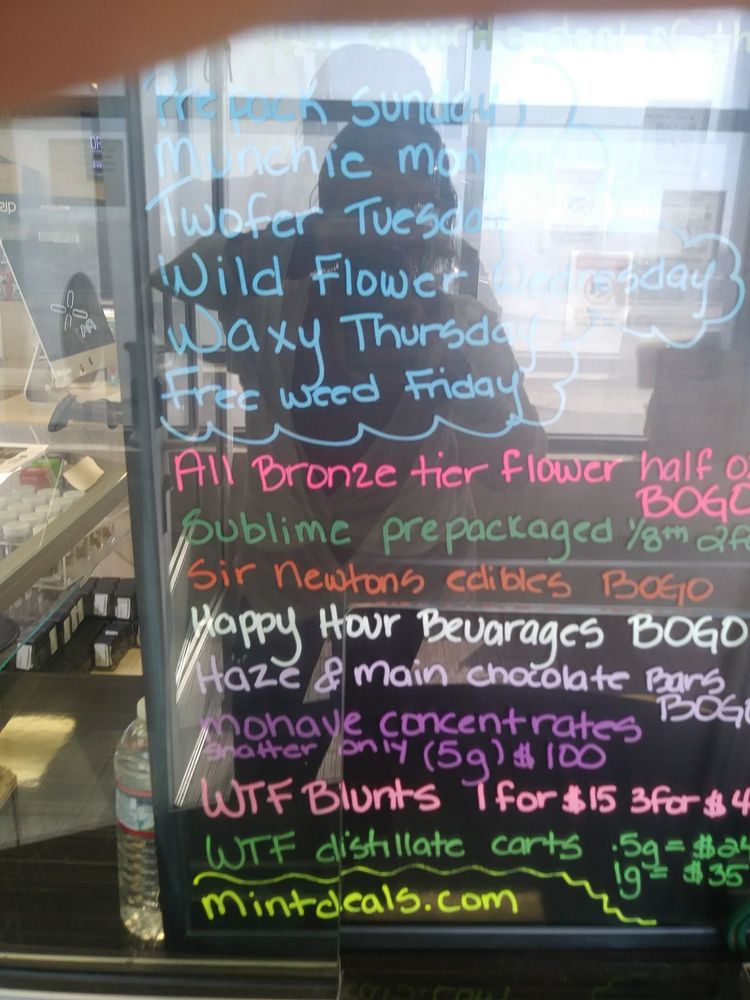 deal of th
Prepack Sunday
Munchie mon
Twofer Tuesday
Wild Flower Wednesday
Waxy Thursday
Free weed Friday
All Bronze tier flower half o
BOGO
Sublime prepackaged 1/8th 2f
Sir Newtons edibles BOGO
Happy Hour Bevarages BOGO
Haze & main chocolate Bars
BOGO
mohave concentrates
shatter only (5g) $100
WTF Blunts 1 for $15 3 for $4
WTF distillate carts .5g = $24
1g = $35
mintdeals.com